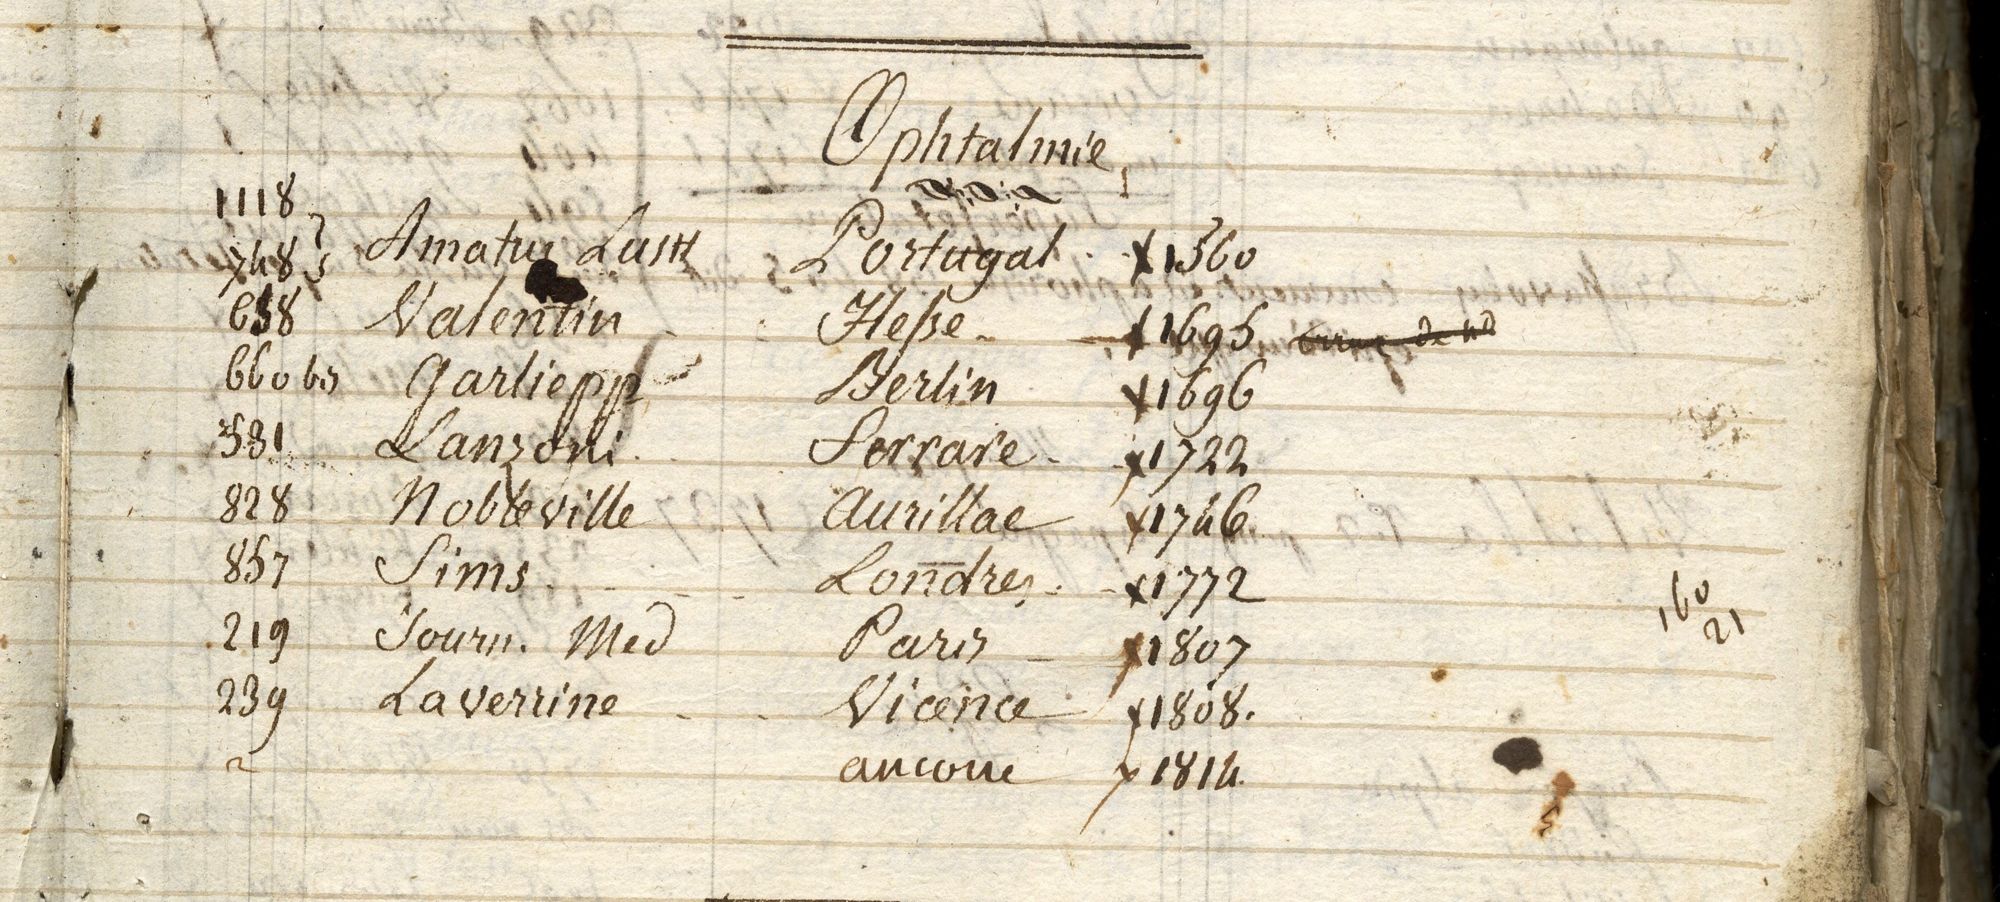 Ophtalmie
1118
748 Amatus Lusit Portugal x 1560
658 Valentin Hesse x 1695
660 bis Garliepp Berlin x 1696
531 Lanzoni Ferrare x 1722
828 Nobleville Aurillac x 1746
857 Sims Londres x 1772
219 Journ. Med Paris x 1807
239 Laverrine Vicence x 1808.
ancone x 1814.
160
21